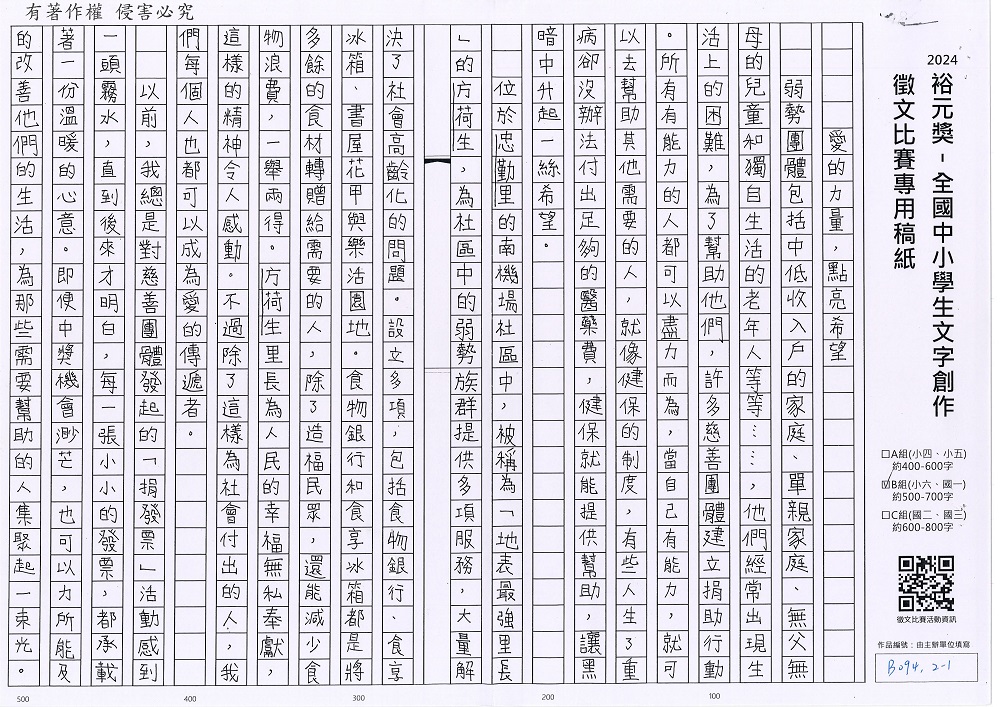 有著作權 侵害必究
2024
裕元獎-全國中小學生文字創作
徵文比賽專用稿紙
□A組(小四、小五)
約400-600字
☑B組(小六、國一)
約500-700字
□C組(國二、國三)
約600-800字
徵文比賽活動資訊
作品編號:由主辦單位填寫
B094, 2-1
愛的力量,點亮希望
弱勢團體包括中低收入戶的家庭、單親家庭、無父無
母的兒童和獨自生活的老年人等等……,他們經常出現生
活上的困難,為了幫助他們,許多慈善團體建立捐助行動
。所有有能力的人都可以盡力而為,當自己有能力,就可
以去幫助其他需要的人,就像健保的制度,有些人生了重
病卻沒辦法付出足夠的醫藥費,健保就能提供幫助,讓黑
暗中升起一絲希望。
位於忠勤里的南機場社區中,被稱為「地表最強里長
」的方荷生,為社區中的弱勢族群提供多項服務,大量解
決了社會高齡化的問題。設立多項,包括食物銀行、食享
冰箱、書屋花甲與樂活園地。食物銀行和食享冰箱都是將
多餘的食材轉贈給需要的人,除了造福民眾,還能減少食
物浪費,一舉兩得。方荷生里長為人民的幸福無私奉獻,
這樣的精神令人感動。不過除了這樣為社會付出的人,我
們每個人也都可以成為愛的傳遞者。
以前,我總是對慈善團體發起的「捐發票」活動感到
一頭霧水,直到後來才明白,每一張小小的發票,都承載
著一份溫暖的心意。即使中獎機會渺茫,也可以力所能及
的改善他們的生活,為那些需要幫助的人集聚起一束光。
100
200
300
400
500